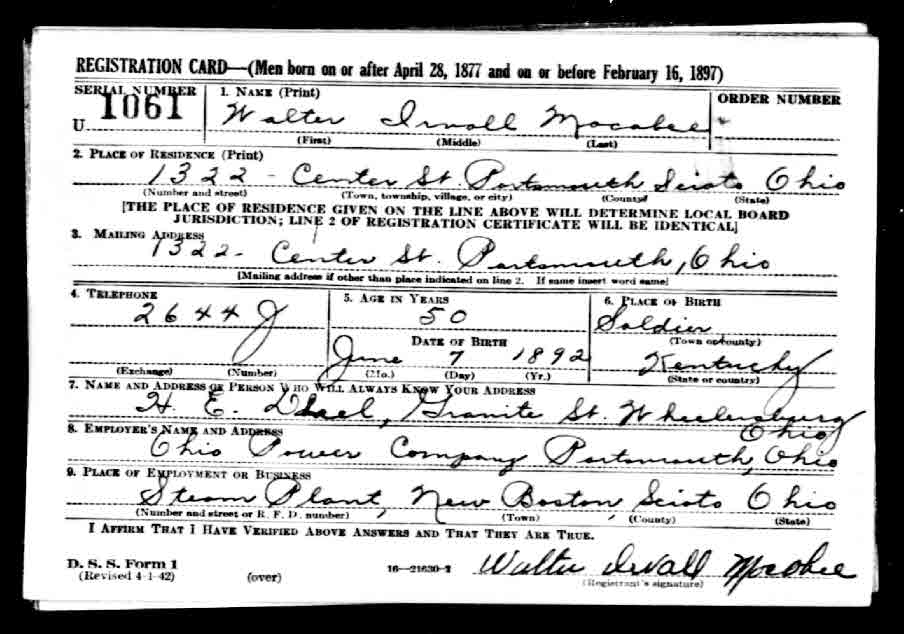 REGISTRATION CARD—(Men born on or after April 28, 1877 and on or before February 16, 1897)
SERIAL NUMBER 1. NAME (Print) ORDER NUMBER
U 1061 Walter Irvall Macabee
(First) (Middle) (Last)
2. PLACE OF RESIDENCE (Print)
1322 - Center St Portsmouth Scioto Ohio
(Number and street) (Town, township, village, or city) (County) (State)
[THE PLACE OF RESIDENCE GIVEN ON THE LINE ABOVE WILL DETERMINE LOCAL BOARD
JURISDICTION; LINE 2 OF REGISTRATION CERTIFICATE WILL BE IDENTICAL]
3. MAILING ADDRESS
1322- Center St. Portsmouth, Ohio
[Mailing address if other than place indicated on line 2. If same insert word same]
4. TELEPHONE 5. AGE IN YEARS 6. PLACE OF BIRTH
2644 J 50 Soldier
DATE OF BIRTH (Town or county)
June 7 1892 Kentucky
(Exchange) (Number) (Mo.) (Day) (Yr.) (State or country)
7. NAME AND ADDRESS OF PERSON WHO WILL ALWAYS KNOW YOUR ADDRESS
H. E. Granite St. Wheelersburg
Ohio
8. EMPLOYER'S NAME AND ADDRESS
Ohio Power Company Portsmouth, Ohio
9. PLACE OF EMPLOYMENT OR BUSINESS
Steam Plant, New Boston, Scioto Ohio
(Number and street or R. F. D. number) (Town) (County) (State)
I AFFIRM THAT I HAVE VERIFIED ABOVE ANSWERS AND THAT THEY ARE TRUE.
D. S. S. Form 1
(Revised 4-1-42) (over) 16—21630-2 Walter Irvall Macabee
(Registrant's signature)